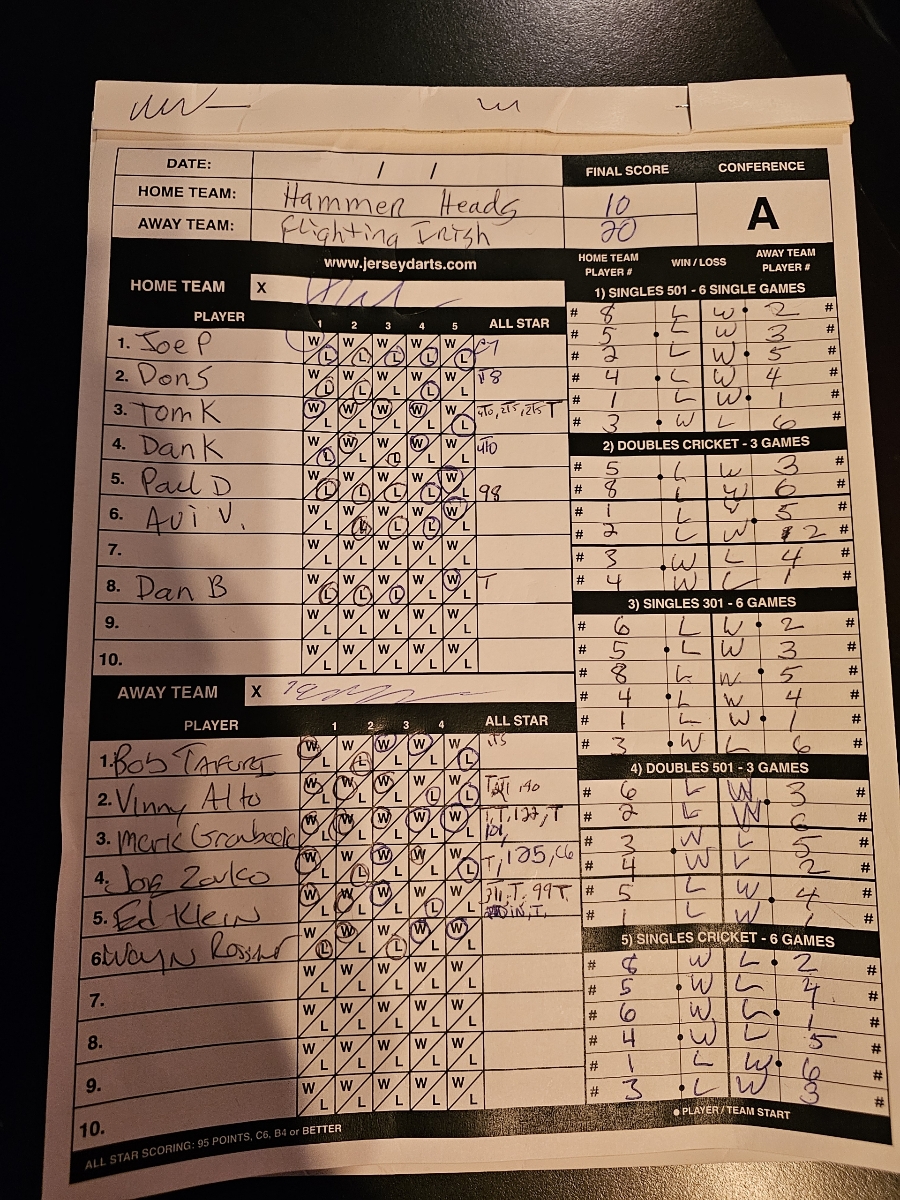 DATE: / / FINAL SCORE CONFERENCE
HOME TEAM: Hammer Heads 10 A
AWAY TEAM: Flighting Irish 20
www.jerseydarts.com HOME TEAM PLAYER # WIN / LOSS AWAY TEAM PLAYER #
HOME TEAM X
PLAYER 1 2 3 4 5 ALL STAR
1. Joe P W L W L W L W L W L
2. Don S W L W L W L W L W L
3. Tom K W L W L W L W L W L
4. Dan K W L W L W L W L W L
5. Paul D W L W L W L W L W L 98
6. Avi V. W L W L W L W L W L
7. W L W L W L W L W L
8. Dan B W L W L W L W L W L T
9. W L W L W L W L W L
10. W L W L W L W L W L
AWAY TEAM X
PLAYER 1 2 3 4 ALL STAR
1. Bob Tafuri W L W L W L W L W L
2. Vinny Alto W L W L W L W L W L
3. Mark W L W L W L W L W L T, T, 122, T
4. W L W L W L W L W L T, 125, C6
5. Ed Klein W L W L W L W L W L
6. Wayn W L W L W L W L W L
7. W L W L W L W L W L
8. W L W L W L W L W L
9. W L W L W L W L W L
10. W L W L W L W L W L
ALL STAR SCORING: 95 POINTS, C6, B4 or BETTER
1) SINGLES 501 - 6 SINGLE GAMES
# 8 L W 2 #
# 5 L W 3 #
# 2 L W 5 #
# 4 L W 4 #
# 1 L W 1 #
# 3 W L 6 #
2) DOUBLES CRICKET - 3 GAMES
# 5 L W 3 #
# 8 L W 6 #
# 1 L W 5 #
# 2 L W 2 #
# 3 W L 4 #
# 4 W L 1 #
3) SINGLES 301 - 6 GAMES
# 6 L W 2 #
# 5 L W 3 #
# 8 L W 5 #
# 4 L W 4 #
# 1 L W 1 #
# 3 W L 6 #
4) DOUBLES 501 - 3 GAMES
# 6 L W 3 #
# 2 L W 6 #
# 3 W L 5 #
# 4 W L 2 #
# 5 L W 4 #
# 1 L W 1 #
5) SINGLES CRICKET - 6 GAMES
# 8 W L 2 #
# 5 W L 4 #
# 6 W L 1 #
# 4 W L 5 #
# 1 L W 6 #
# 3 L W 3 #
PLAYER / TEAM START